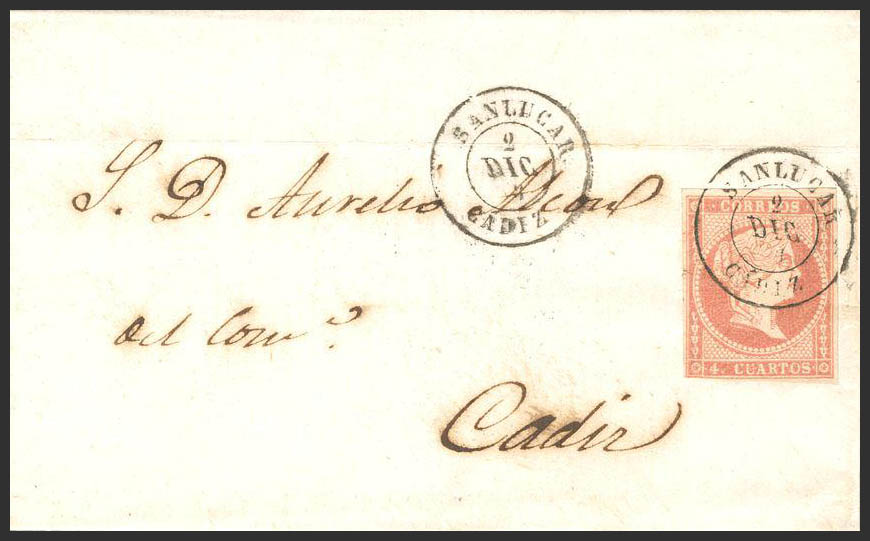 SANLUCAR
2
DIC
CADIZ
SANLUCAR
2
DIC
CADIZ
CORREOS
4 CUARTOS
S. D. Aurelio Alcon
del Com.o
Cadiz